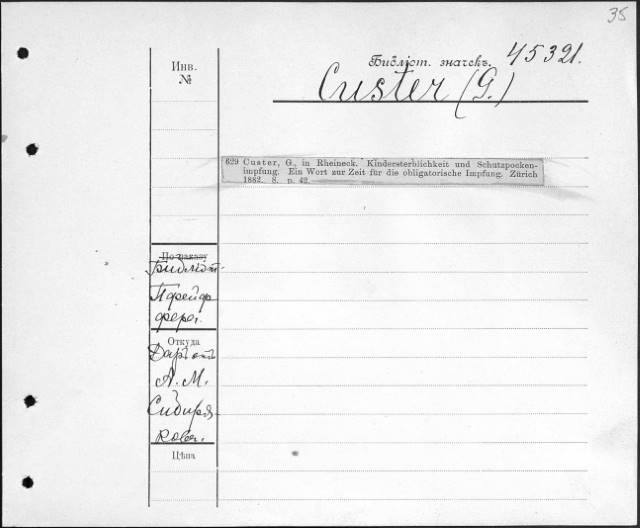 35
Инв.
№
Библіот. значекъ. 45321.
Custer (G.)
629 Custer, G., in Rheineck. Kindersterblichkeit und Schutzpocken-
impfung. Ein Wort zur Zeit für die obligatorische Impfung. Zürich
1882. 8. p. 42.
По заказу
Библіот.
Пфейф
фера.
Откуда
Даръ отъ
А. М.
Сибиря-
кова.
Цѣна